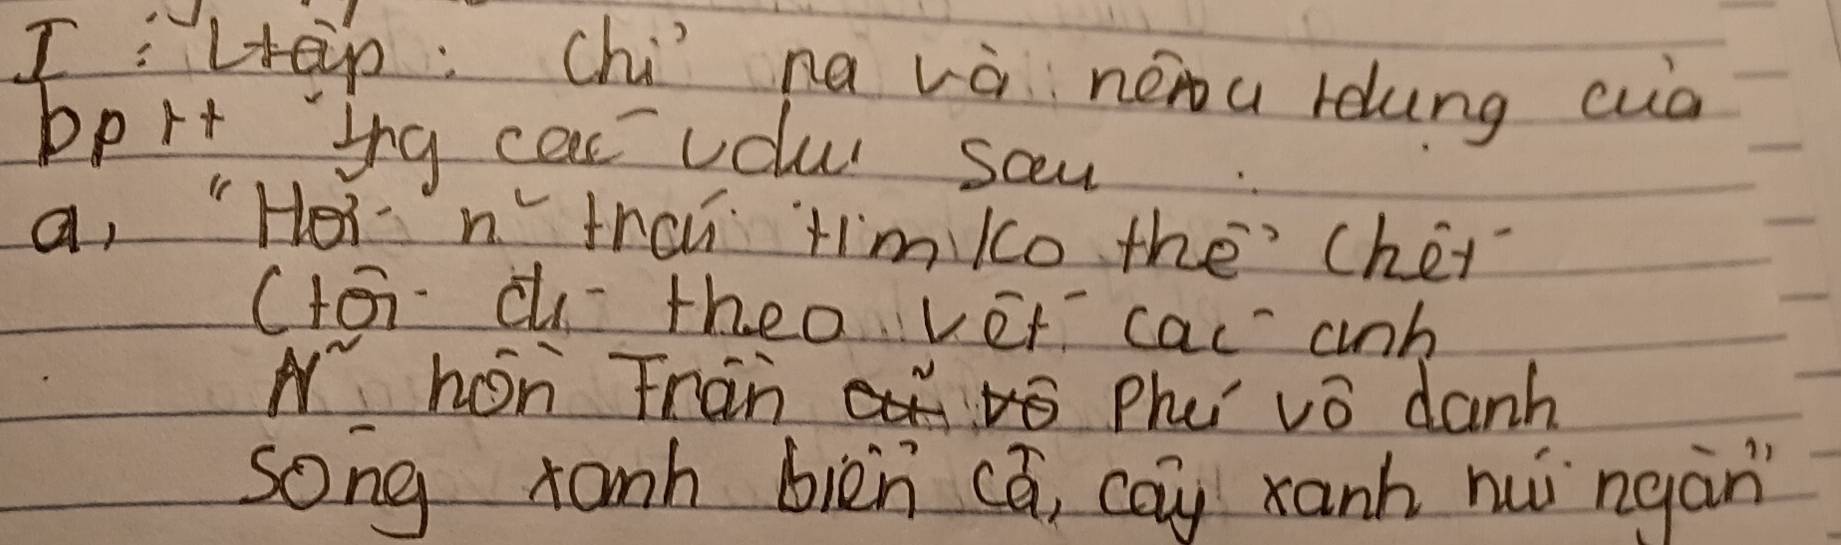 I: Ltập: Chỉ na và nêu tdụng của
bprt tng các vdụ sau:
a, "Hỡi n~ trái tim ko thể chết
Ctôi đi theo vết các anh
N~ hồn Trần Phú vô danh
Sóng xanh biển cả, cây xanh núi ngàn"